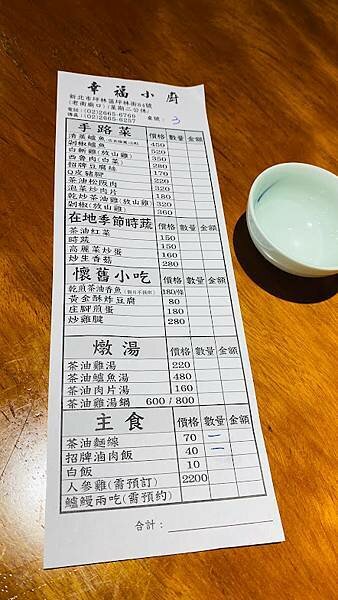 幸福小廚
新北市坪林區坪林街64號
(老街廟口)(星期二公休)
電話:(02)2665-6769
傳真:(02)2665-6257 桌號: 3
手路菜 價格 數量 金額
450
剁椒鱸魚 520
白斬雞(放山雞) 350
西魯肉(白菜) 280
招牌豆腐絲 170
Q皮豬腳 220
茶油松阪肉 320
泡菜炒肉片 160
乾炒茶油雞(放山雞) 320
剁椒(放山雞) 360
在地季節時蔬 價格 數量 金額
茶油紅菜 150
時蔬 150
高麗菜炒蛋 160
炒生香菇 280
懷舊小吃 價格 數量 金額
乾煎茶油香魚 180/條
黃金酥炸豆腐 80
庄腳煎蛋 180
炒雞腱 280
燉湯 價格 數量 金額
茶油雞湯 220
茶油鱸魚湯 480
茶油肉片湯 160
茶油雞湯鍋 600 / 800
主食 價格 數量 金額
茶油麵線 70 一
招牌滷肉飯 40 一
白飯 10
人參雞(需預訂) 2200
鱸鰻兩吃(需預約)
合計: